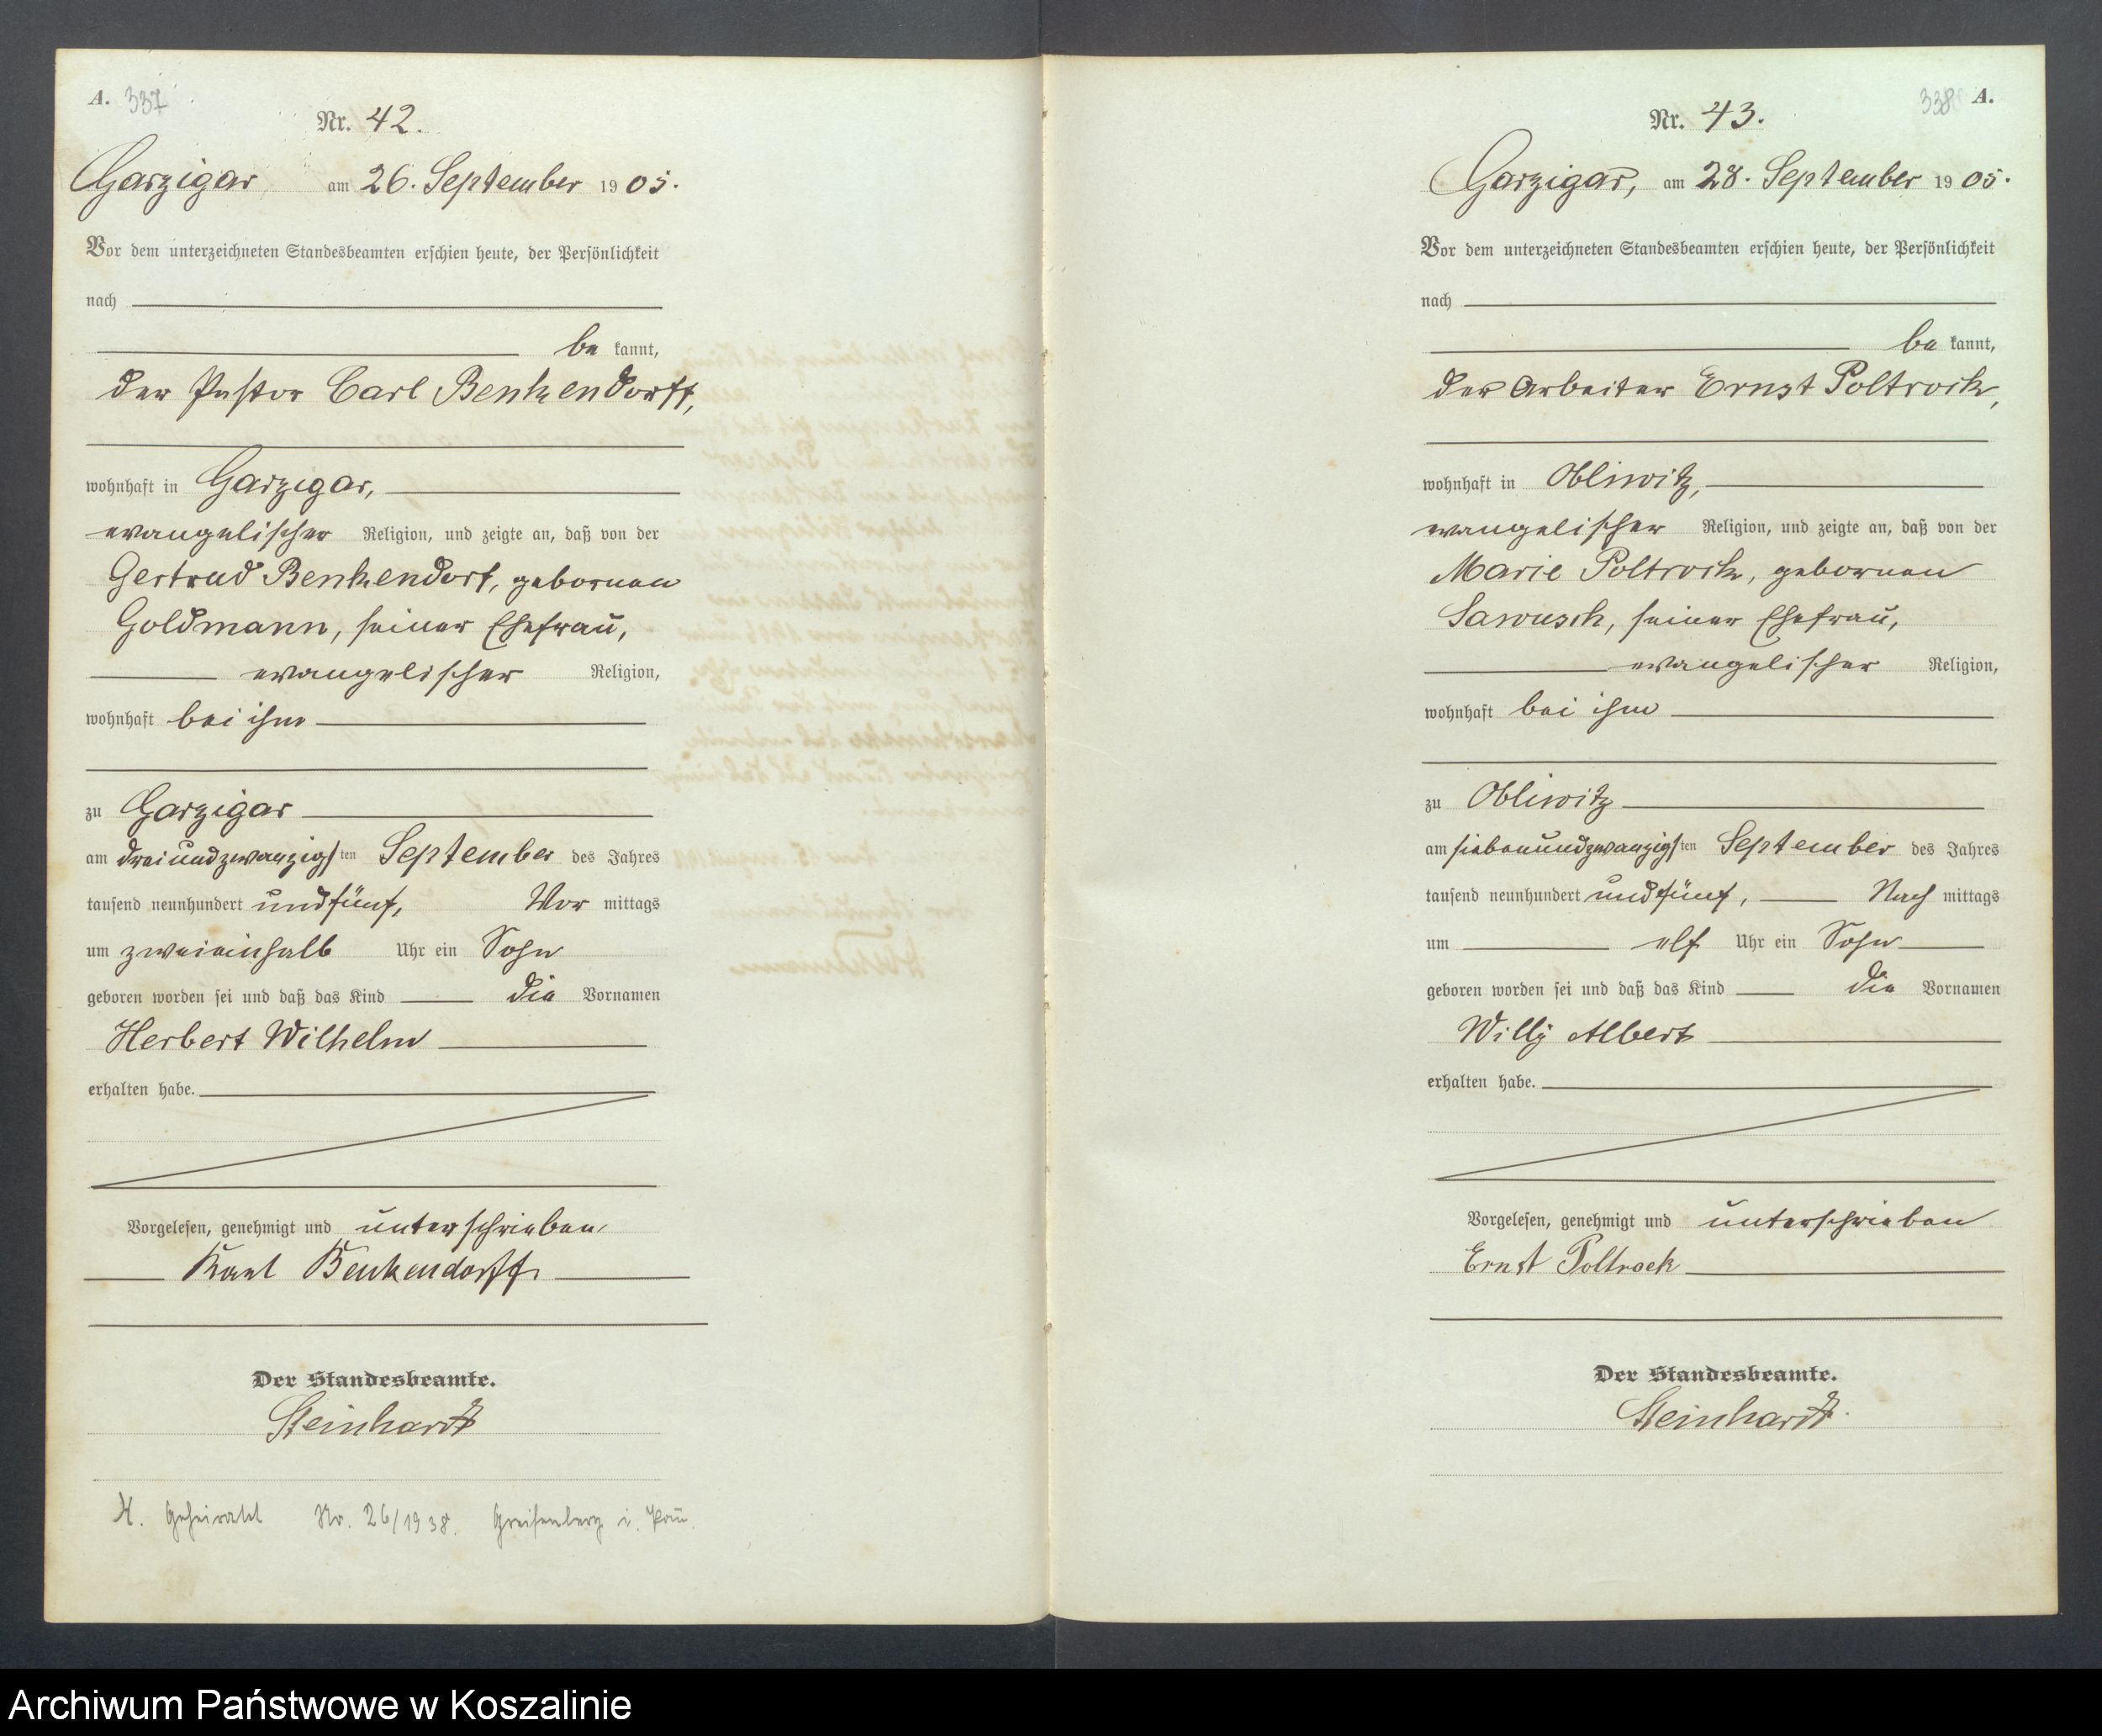 A. 337
Nr. 42.
Garzigar am 26. September 1905.
Vor dem unterzeichneten Standesbeamten erschien heute, der Persönlichkeit
nach
be kannt,
der Pastor Carl Benkendorff,
wohnhaft in Garzigar,
evangelischer Religion, und zeigte an, daß von der
Gertrud Benkendorf, gebornen
Goldmann, seiner Ehefrau,
evangelischer Religion,
wohnhaft bei ihm
zu Garzigar
am dreiundzwanzigsten September des Jahres
tausend neunhundert undfünf, Vor mittags
um zweieinhalb Uhr ein Sohn
geboren worden sei und daß das Kind die Vornamen
Herbert Wilhelm
erhalten habe.
Vorgelesen, genehmigt und unterschrieben
Karl Benkendorff
Der Standesbeamte.
Steinhardt
H. Geheiratet Nr. 26/1938. Greifenberg i. Pom.
338 A.
Nr. 43.
Garzigar, am 28. September 1905.
Vor dem unterzeichneten Standesbeamten erschien heute, der Persönlichkeit
nach
be kannt,
der Arbeiter Ernst Poltrock,
wohnhaft in Obliwitz,
evangelischer Religion, und zeigte an, daß von der
Marie Poltrock, gebornen
Sawusch, seiner Ehefrau,
evangelischer Religion,
wohnhaft bei ihm
zu Obliwitz
am siebenundzwanzigsten September des Jahres
tausend neunhundert undfünf, Nach mittags
um elf Uhr ein Sohn
geboren worden sei und daß das Kind die Vornamen
Willy Albert
erhalten habe.
Vorgelesen, genehmigt und unterschrieben
Ernst Poltrock
Der Standesbeamte.
Steinhardt.
Archiwum Państwowe w Koszalinie